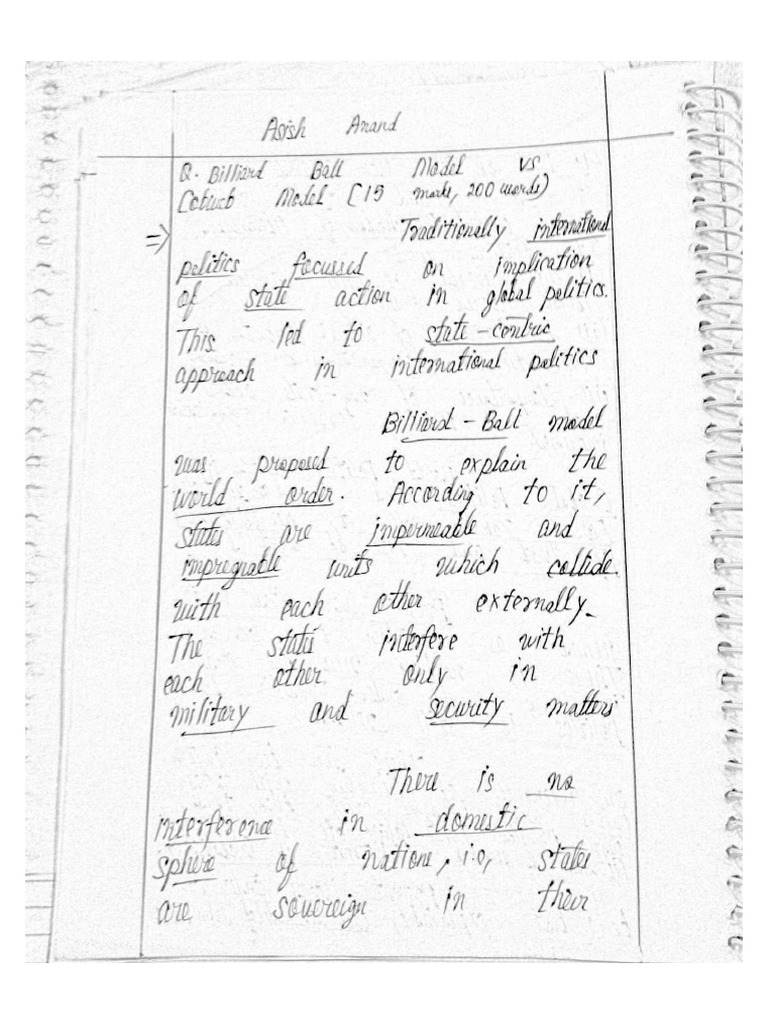 Asish Anand
Q. Billiard Ball Model vs
Cobweb Model (15 marks, 200 words)
⇒ Traditionally international
politics focussed on implication
of state action in global politics.
This led to state-centric
approach in international politics
Billiard-Ball model
was proposed to explain the
world order. According to it,
states are impermeable and
impregnable units which collide
with each other externally.
The states interfere with
each other only in
military and security matters
There is no
interference in domestic
sphere of nations, i.e, states
are sovereign in their